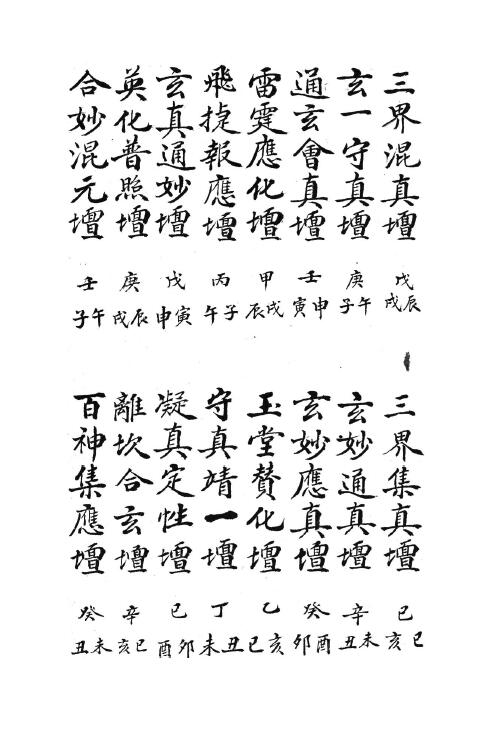 三界混真壇 戊辰戌
玄一守真壇 庚午子
通玄會真壇 壬申寅
雷霆應化壇 甲戌辰
飛捷報應壇 丙子午
玄真通妙壇 戊寅申
英化普照壇 庚辰戌
合妙混元壇 壬午子
三界集真壇 己巳亥
玄妙通真壇 辛未丑
玄妙應真壇 癸酉卯
玉堂賛化壇 乙亥巳
守真靖一壇 丁丑未
凝真定性壇 己卯酉
離坎合玄壇 辛巳亥
百神集應壇 癸未丑